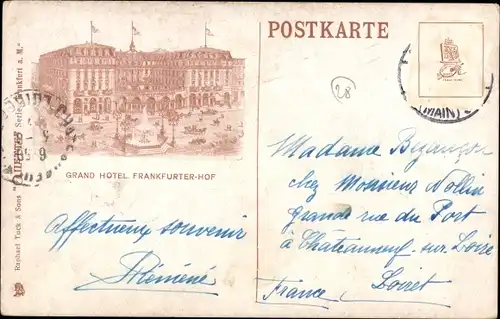 POSTKARTE
Raphael Tuck & Sons "AILETTE" Serie Frankfurt a. M."
GRAND HOTEL FRANKFURTER-HOF
(MAIN)
28
Affectueux souvenir
Madame
chez Monsieur Nollin
Grande rue du Port
à Châteauneuf-sur-Loire
Loiret
France